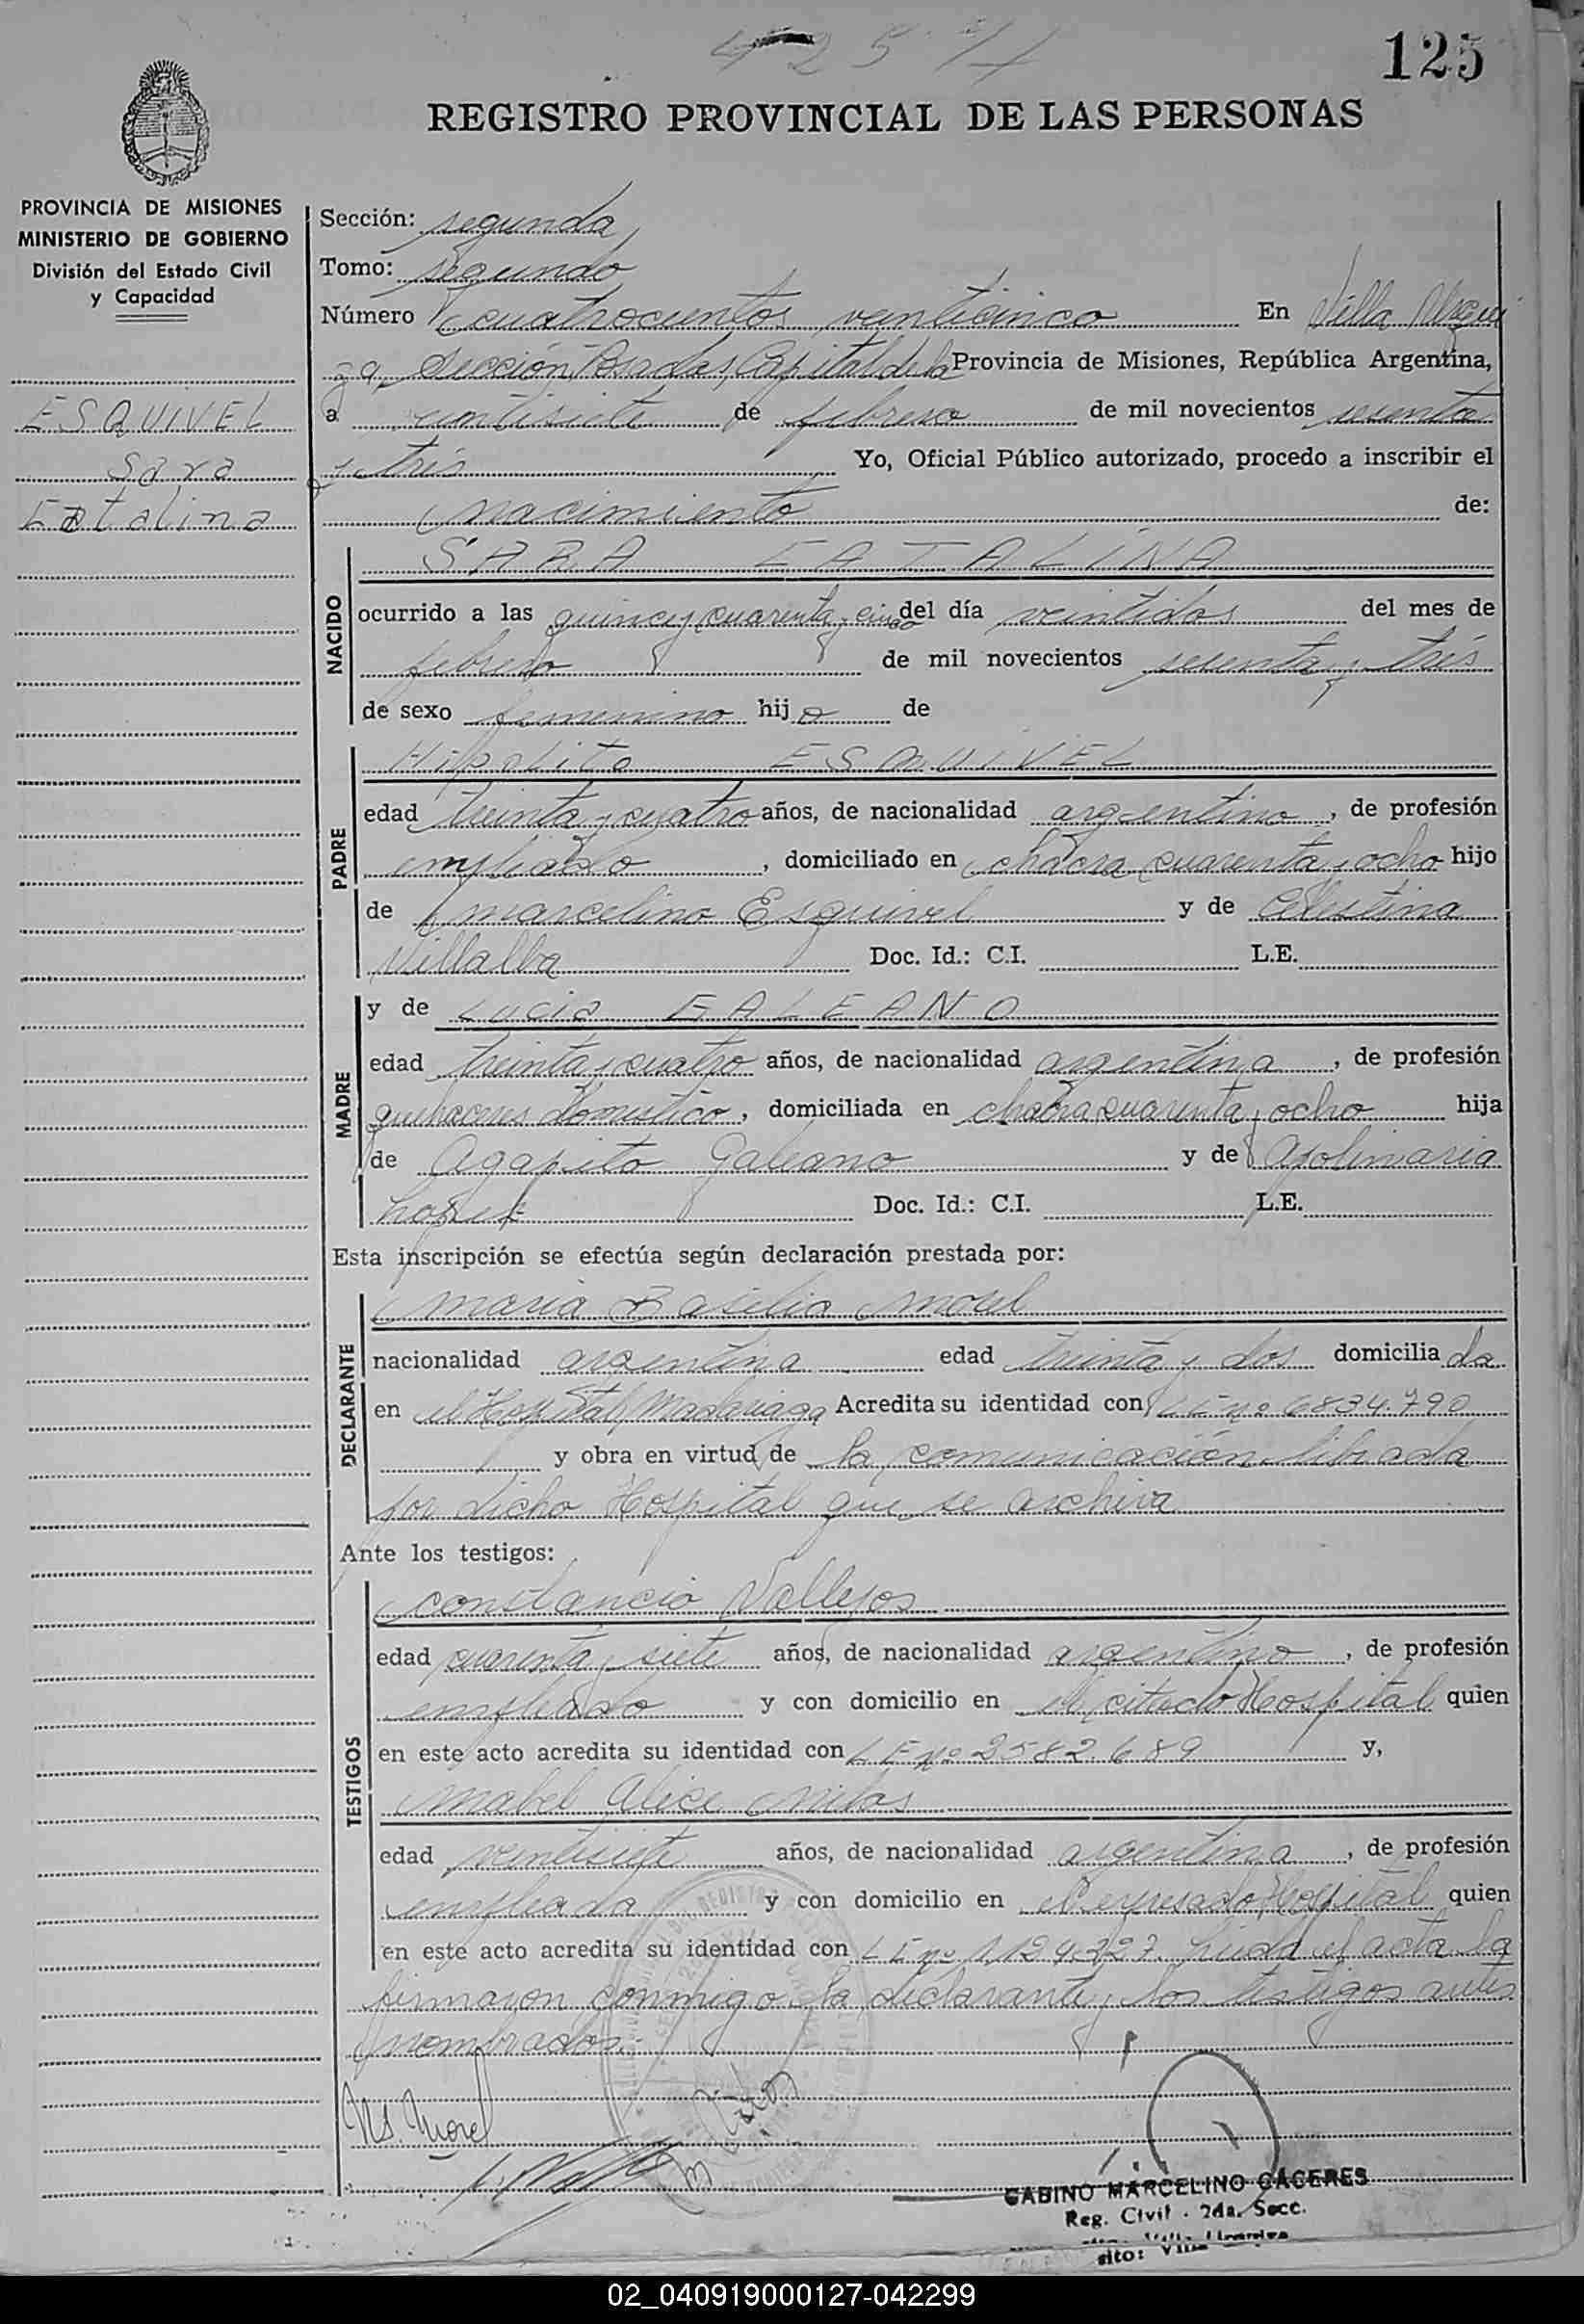 125
REGISTRO PROVINCIAL DE LAS PERSONAS
PROVINCIA DE MISIONES
MINISTERIO DE GOBIERNO
División del Estado Civil
y Capacidad
ESQUIVEL
Sara
Catalina
Sección: segunda
Tomo: segundo
Número cuatrocientos veinticinco En Villa Urqui
za, Sección Posadas, Capital de la Provincia de Misiones, República Argentina,
a veintisiete de febrero de mil novecientos sesenta
y tres Yo, Oficial Público autorizado, procedo a inscribir el
nacimiento de:
NACIDO
SARA CATALINA
ocurrido a las quince y cuarenta y cinco del día veintidos del mes de
febrero de mil novecientos sesenta y tres
de sexo femenino hija de
PADRE
Hipolito ESQUIVEL
edad treinta y cuatro años, de nacionalidad argentino, de profesión
empleado, domiciliado en chacra cuarenta y ocho hijo
de Marcelino Esquivel y de Celestina
Villalba Doc. Id.: C.I. L.E.
MADRE
y de Lucia GALEANO
edad treinta y cuatro años, de nacionalidad argentina, de profesión
quehaceres domestico, domiciliada en chacra cuarenta y ocho hija
de Agapito Galeano y de Apolinaria
Lopez Doc. Id.: C.I. L.E.
Esta inscripción se efectúa según declaración prestada por:
DECLARANTE
Maria Basilia Morel
nacionalidad argentina edad treinta y dos domiciliada
en el Hospital Madariaga Acredita su identidad con L E nº 6834.790
y obra en virtud de la comunicación librada
por dicho Hospital que se archiva
Ante los testigos:
TESTIGOS
Constancio Vallejos
edad cuarenta y siete años, de nacionalidad argentino, de profesión
empleado y con domicilio en el citado Hospital quien
en este acto acredita su identidad con L E nº 3582.689 y,
Mabel Alice Milos
edad veintisiete años, de nacionalidad argentina, de profesión
empleada y con domicilio en el expresado Hospital quien
en este acto acredita su identidad con L E nº 1.124.327. Leida el acta la
firmaron conmigo la declarante y los testigos antes
nombrados.
Ms. Morel
GABINO MARCELINO CÁCERES
Reg. Civil - 2da. Secc.
sito: Villa
02_040919000127-042299